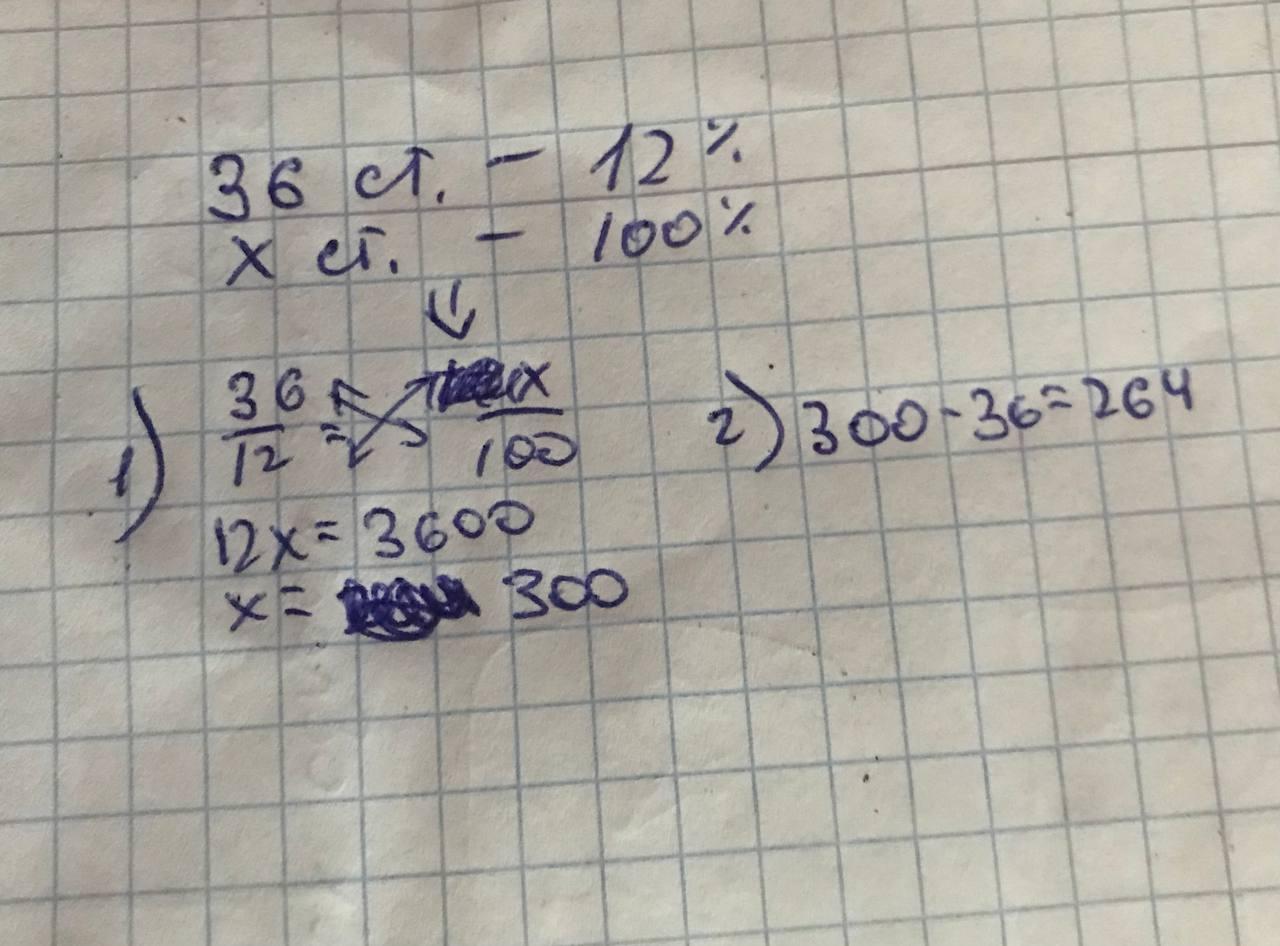 36 ст. - 12%
x ст. - 100%
⇓
1) 36/12 = x/100
12x = 3600
x = 300
2) 300 - 36 = 264